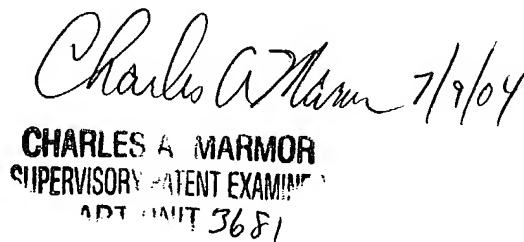 Charles A Marmor 7/9/04
CHARLES A MARMOR
SUPERVISORY PATENT EXAMINE
ART UNIT 3681